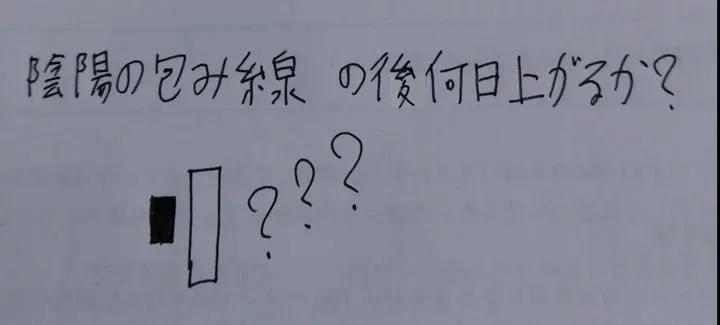 陰陽の包み線 の後何日上がるか?
???